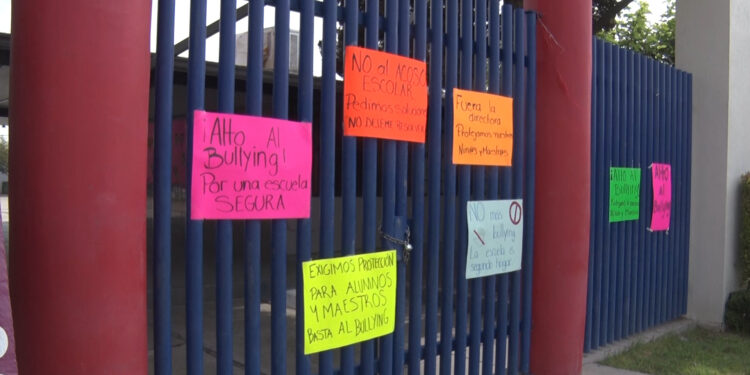 ¡Alto Al
Bullying!
Por una escuela
SEGURA
NO al ACOSO
ESCOLAR
Pedimos
NO
Fuera la
directora
Protejamos nuestros
Niños y Maestros
NO mas
bullying
La escuela es
segundo hogar
EXIGIMOS PROTECCIÓN
PARA ALUMNOS
Y MAESTROS
BASTA AL BULLYING
¡ALTO AL
BULLYING!
¡Alto Al